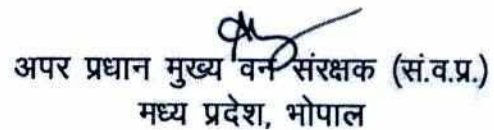 अपर प्रधान मुख्य वन संरक्षक (सं.व.प्र.)
मध्य प्रदेश, भोपाल